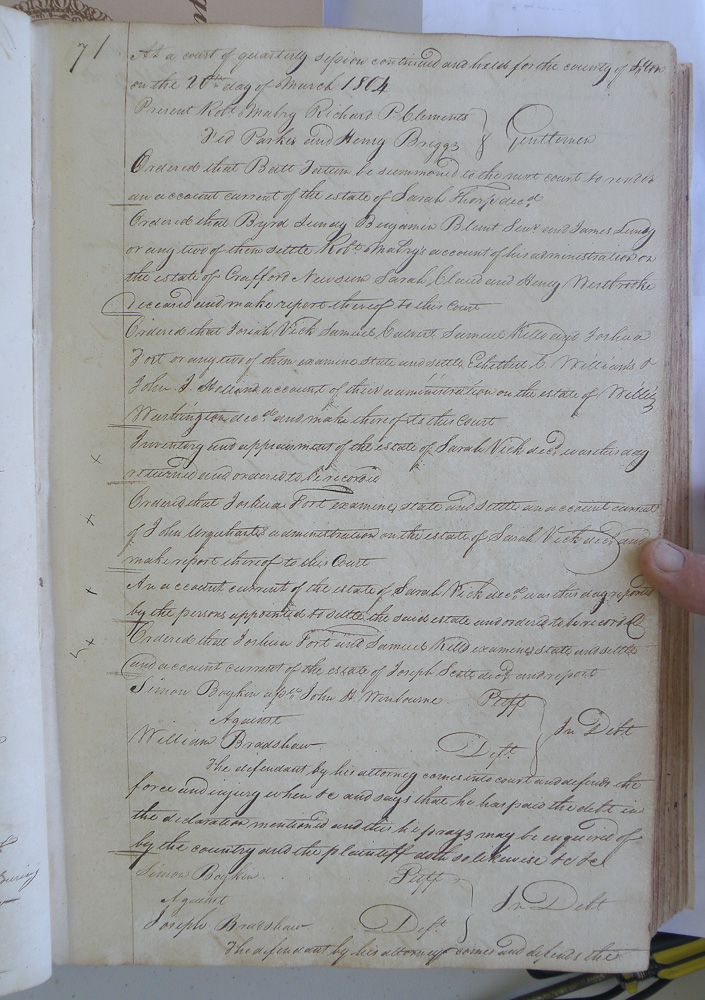 71
At a court of quarterly session continued and held for the county of
on the 20th day of March 1804
Present Robt Mabry Richard P Clements
Fed Parker and Henry Briggs } Gentlemen
Ordered that Batt Tatum be summoned to the next court to render
an account current of the estate of Sarah Thorp decd
Ordered that Byrd Lundy Benjamin Blunt Senr and James Lundy
or any two of them settle Robt Mabry's account of his administration on
the estate of Crafford Newsum Sarah Claud and Henry Westbrooke
deceased and make report thereof to this Court
Ordered that Josiah Vick Samuel Calvert Samuel Kello and Joshua
Fort or any two of them examine state and settle Etheldred C. Williams &
John J Holland account of their administration on the estate of Willis
Washington decd and make thereof to this Court
Inventory and appraisment of the estate of Sarah Vick decd was this day
returned and ordered to be recorded
Ordered that Joshua Fort examine state and settle an account current
of John Urquharts administration on the estate of Sarah Vick decd and
make report thereof to this Court
An account current of the estate of Sarah Vick decd was this day reported
by the persons appointed to settle the said estate and ordered to be recorded
Ordered that Joshua Fort and Samuel Kello examine state and settle
and account current of the estate of Joseph Scott decd and report
Simon Boykin John H Winbourne Pltff
Against } In Debt
William Bradshaw Deft
The defendant by his attorney comes into court and defends the
force and injury when &c and says that he has paid the debt in
the declaration mentioned and this he prays may be inquired of
by the country and the plaintiff doth so likewise &c &c
Simon Boykin Pltff
Against } In Debt
Joseph Bradshaw Deft
The defendant by his attorney comes and defends the